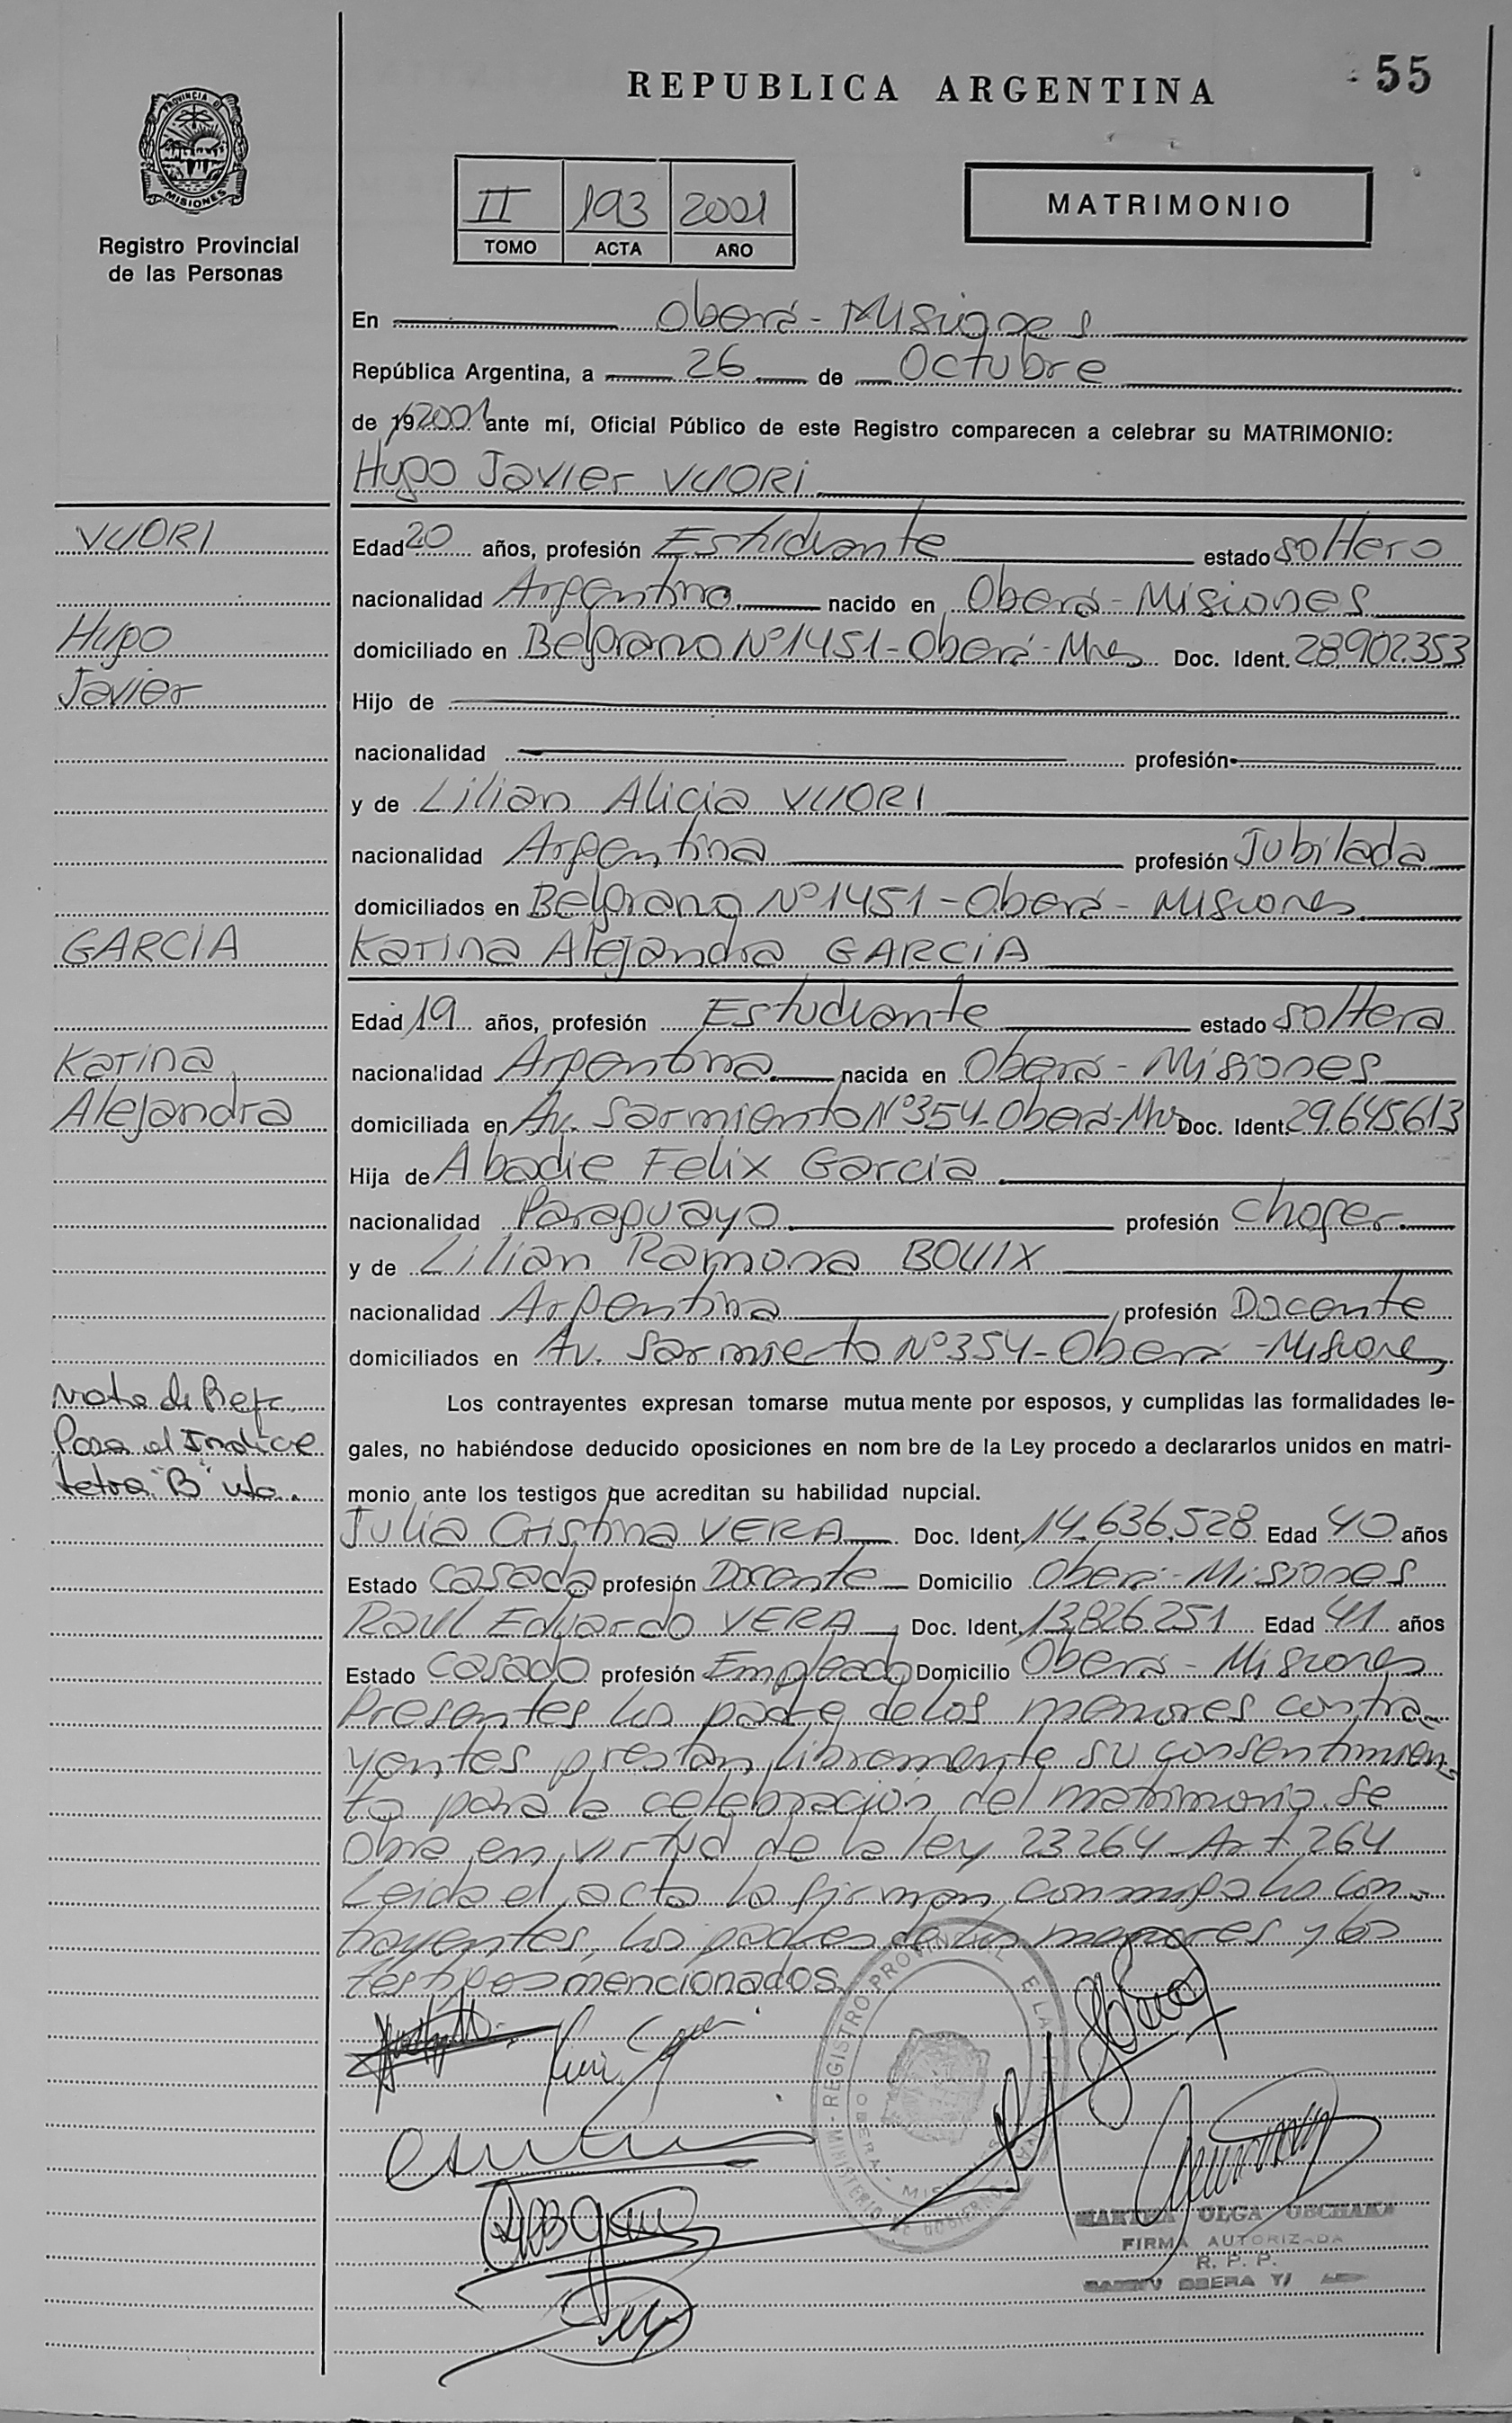 REPUBLICA ARGENTINA
55
PROVINCIA D
MISIONES
Registro Provincial
de las Personas
II 193 2001
TOMO ACTA AÑO
MATRIMONIO
En Oberá - Misiones
República Argentina, a 26 de Octubre
de 19 2001 ante mí, Oficial Público de este Registro comparecen a celebrar su MATRIMONIO:
Hugo Javier VUORI
VUORI
Edad 20 años, profesión Estudiante estado soltero
nacionalidad Argentina nacido en Oberá - Misiones
Hugo
domiciliado en Belgrano Nº 1451 - Oberá - Mnes Doc. Ident. 28.902.353
Javier
Hijo de
nacionalidad profesión
y de Lilian Alicia VUORI
nacionalidad Argentina profesión Jubilada
domiciliados en Belgrano Nº 1451 - Oberá - Misiones
GARCIA
Karina Alejandra GARCIA
Edad 19 años, profesión Estudiante estado soltera
Karina
nacionalidad Argentina nacida en Oberá - Misiones
Alejandra
domiciliada en Av. Sarmiento Nº 354 - Oberá - Mnes Doc. Ident. 29.645.613
Hija de Abadie Felix Garcia
nacionalidad Paraguayo profesión Chofer
y de Lilian Ramona BOUIX
nacionalidad Argentina profesión Docente
domiciliados en Av. Sarmiento Nº 354 - Oberá - Misiones
Nota de Ref.
Para el Indice
Letra "B"
Los contrayentes expresan tomarse mutua mente por esposos, y cumplidas las formalidades le-
gales, no habiéndose deducido oposiciones en nom bre de la Ley procedo a declararlos unidos en matri-
monio ante los testigos que acreditan su habilidad nupcial.
Julia Cristina VERA Doc. Ident. 14.636.528 Edad 40 años
Estado Casada profesión Docente Domicilio Oberá - Misiones
Raul Eduardo VERA Doc. Ident. 13.826.251 Edad 41 años
Estado Casado profesión Empleado Domicilio Oberá - Misiones
Presentes los padre de los menores contra-
yentes prestan libremente su consentimien-
to para la celebración del matrimonio. Se
obra en virtud de la ley 23264 - Art 264
Leida el acta la firman conmigo los con-
trayentes, los padres de los menores y los
testigos mencionados.
REGISTRO PROVINCIAL E LA
MINISTERIO DE GOBIERNO
OBERA - MIS
MARTHA OLGA
FIRMA AUTORIZADA
R. P. P.
OBERA